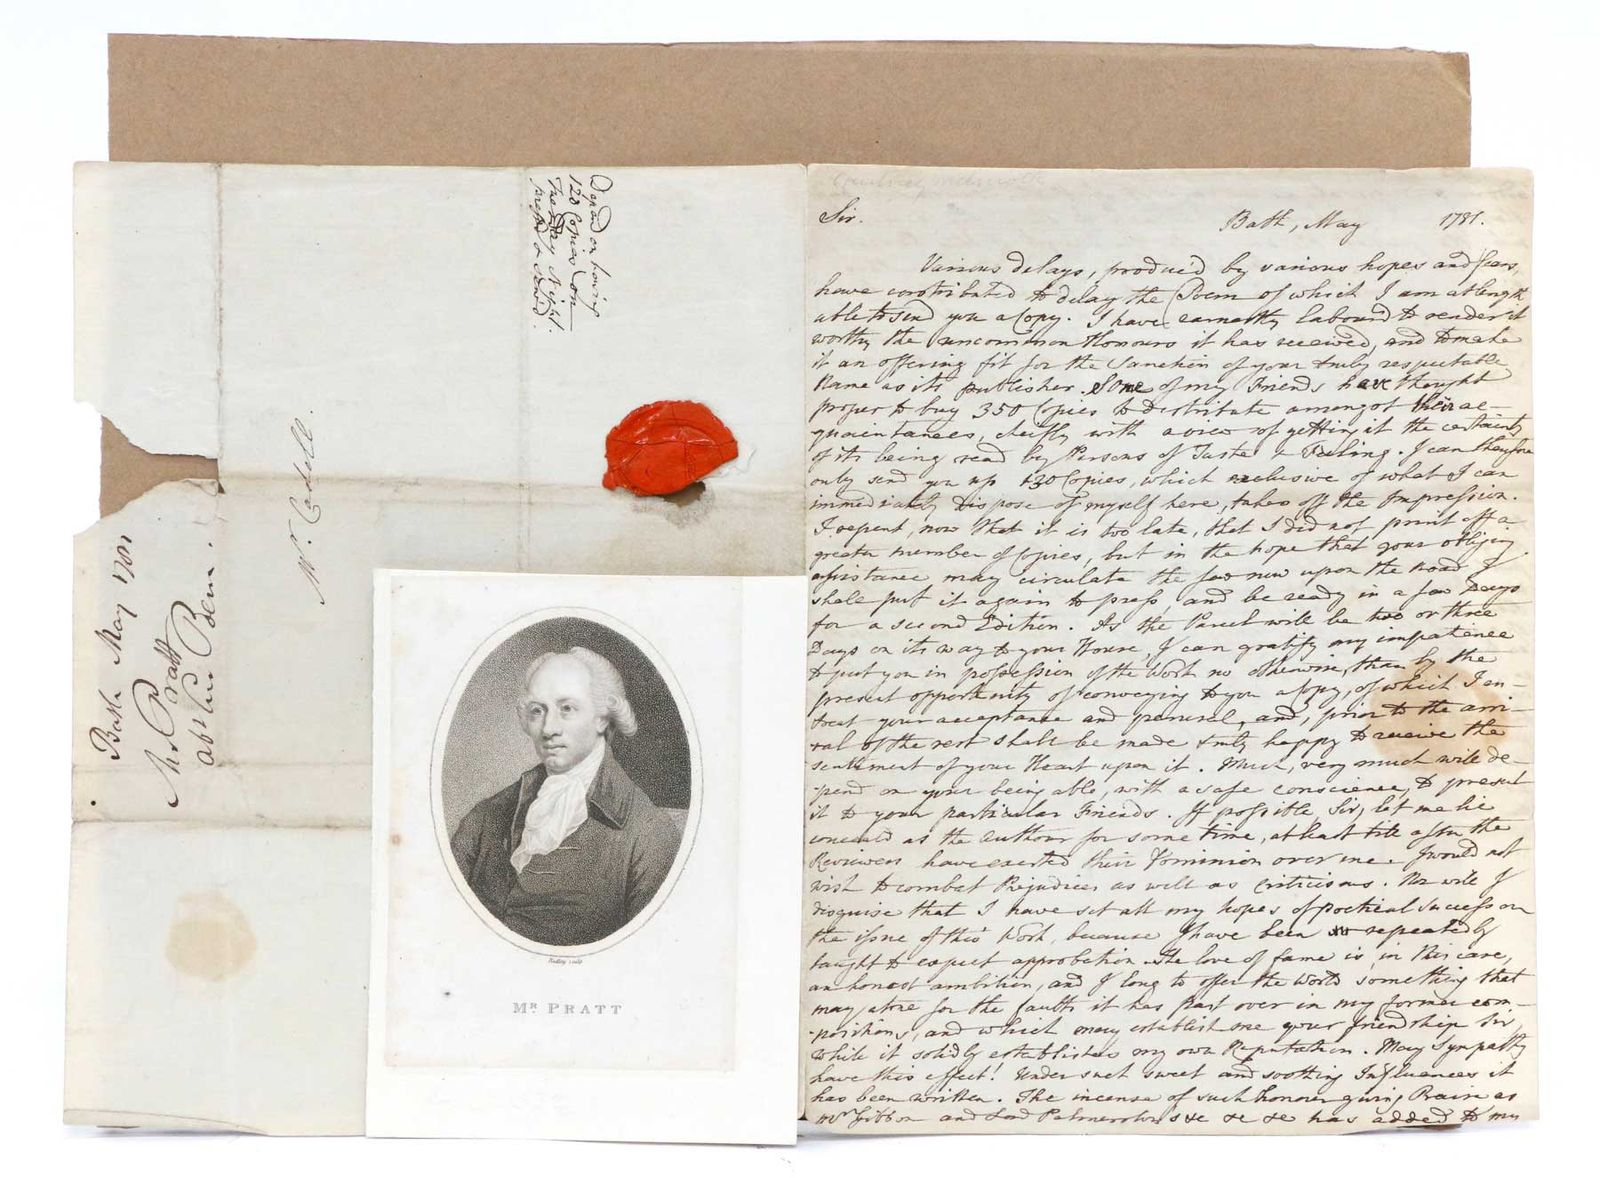 Depend on having
120 Copies on
Thursday Night.
Mr. Cadell.
Bath May 1781
Mr. Pratt
abt his Poem.
Ridley sculp
MR. PRATT
Sir. Bath, May 1781.
Various delays, produc'd by various hopes and fears,
have contributed to delay the Poem of which I am at length
able to send you a Copy. I have earnestly labour'd to render it
worthy the uncommon Honours it has received, and to make
it an offering fit for the Sanction of your truly respectable
Name as its publisher. Some of my Friends have thought
proper to buy 350 Copies to distribute amongst their ac-
quaintances, chiefly with a view of getting it the certainty
of its being read by Persons of Taste & Feeling. I can therefore
only send you up 120 Copies, which exclusive of what I can
immediately dispose of myself here, takes off the Impression.
I repent, now that it is too late, that I did not print off a
greater number of Copies, but in the hope that your obliging
assistance may circulate the few now upon the Road I
shall put it again to press, and be ready in a few Days
for a second Edition. As the Parcel will be two or three
Days on its way to your House, I can gratify my impatience
to put you in possession of the Work no otherwise, than by the
present opportunity of conveying to you a Copy, of which I en-
treat your acceptance and perusal, and, prior to the arri-
val of the rest shall be made truly happy to receive the
sentiment of your Heart upon it. Much, very much will de-
pend on your being able, with a safe conscience, to present
it to your particular Friends. If possible, Sir, let me lie
conceal'd as the Author for some time, at least till after the
Reviewers have exerted their Dominion over me. I would not
wish to combat Prejudices as well as Criticisms. Nor will I
disguise that I have set all my hopes of poetical Success on
the issue of this Work, because I have been repeatedly
taught to expect approbation. The love of fame is, in this case,
an honest ambition, and I long to offer the World something that
may atone for the faults it has past over in my former com-
positions, and which may establish me your friendship Sir,
while it solidly establishes my own Reputation. May Sympathy
have this effect! Under such sweet and soothing Influences it
has been written. The incense of such honour-giving Praise as
Mr. Gibbon and Lord Palmerston &c &c &c has added to my